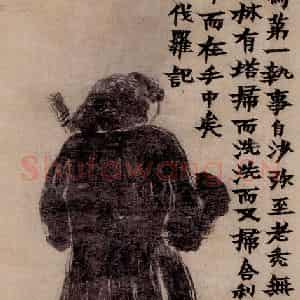 為第一執事自沙弥至老禿無
林有塔掃而洗洗而又掃舍利
中而在手中矣
伐羅記
Shufawang.cn